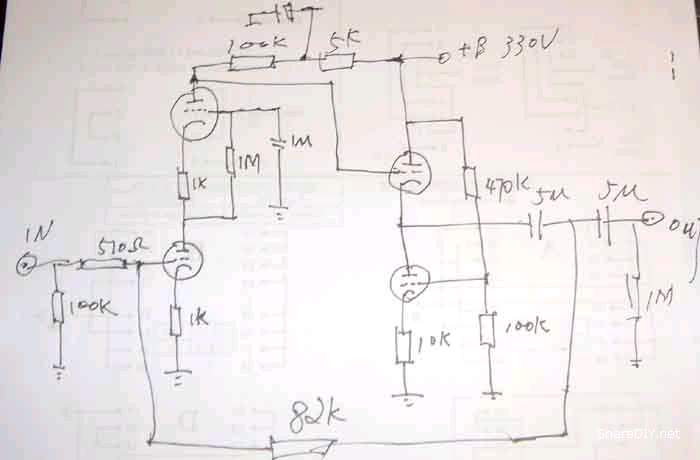 100K
5K
+B 330V
1K
1M
1M
470K
5M
5M
IN
510Ω
100K
1K
10K
100K
1M
82K
ShareDIY.net